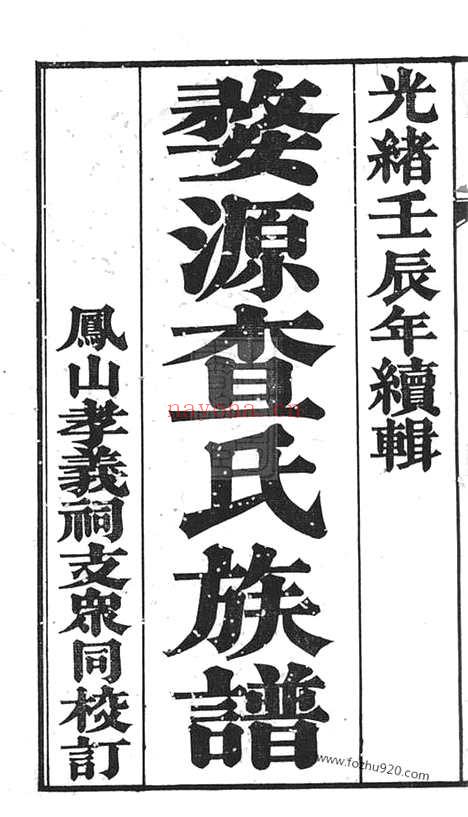 光緒壬辰年續輯
婺源查氏族譜
鳳山孝義祠支眾同校訂
nayona.cn
www.fozhu920.com